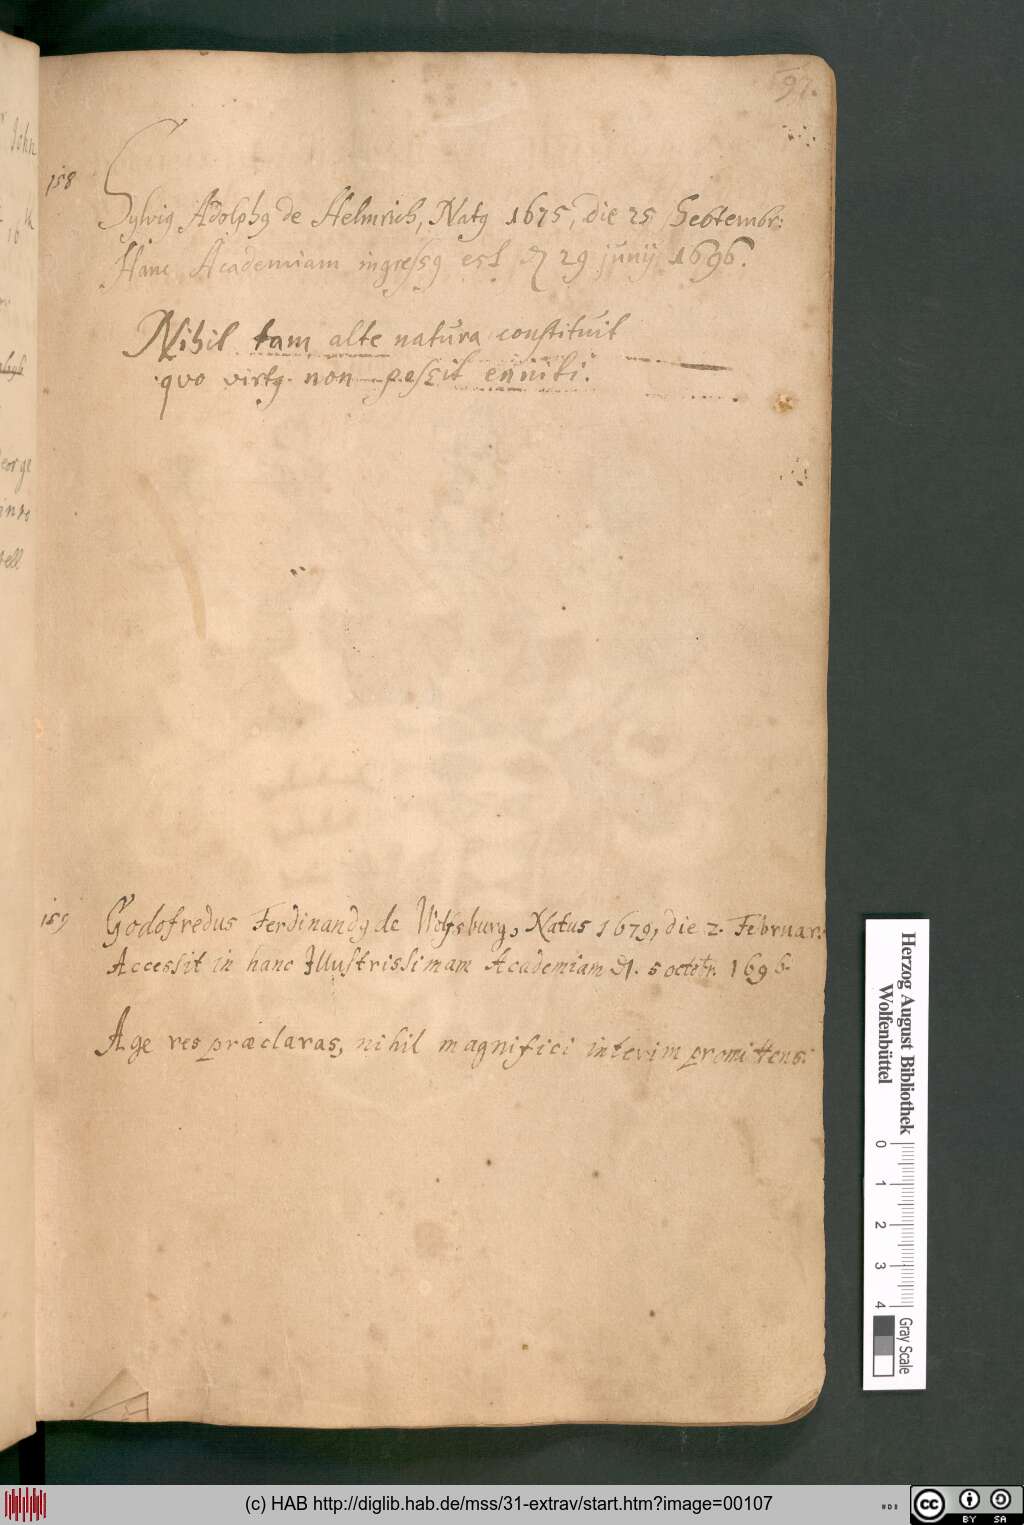 97.
158
Sylviꝰ Adolphꝰ de Helmrich, Natꝰ 1675, die 25 Septembr:
Hanc Academiam ingressꝰ est d 29 junij 1696.
Nihil tam alte natura constituit
quo virtꝰ non possit enniti.
159
Godofredus Ferdinandꝰ de Wolfsburg, Natus 1679, die 2. Februar:
Accessit in hanc Illustrissimam Academiam d. 5 octobr. 1696.
Age res præclaras, nihil magnifici interim promittens.
John
16
eorge
ell
Herzog August Bibliothek
Wolfenbüttel
0 1 2 3 4
Gray Scale
(c) HAB http://diglib.hab.de/mss/31-extrav/start.htm?image=00107
cc BY SA